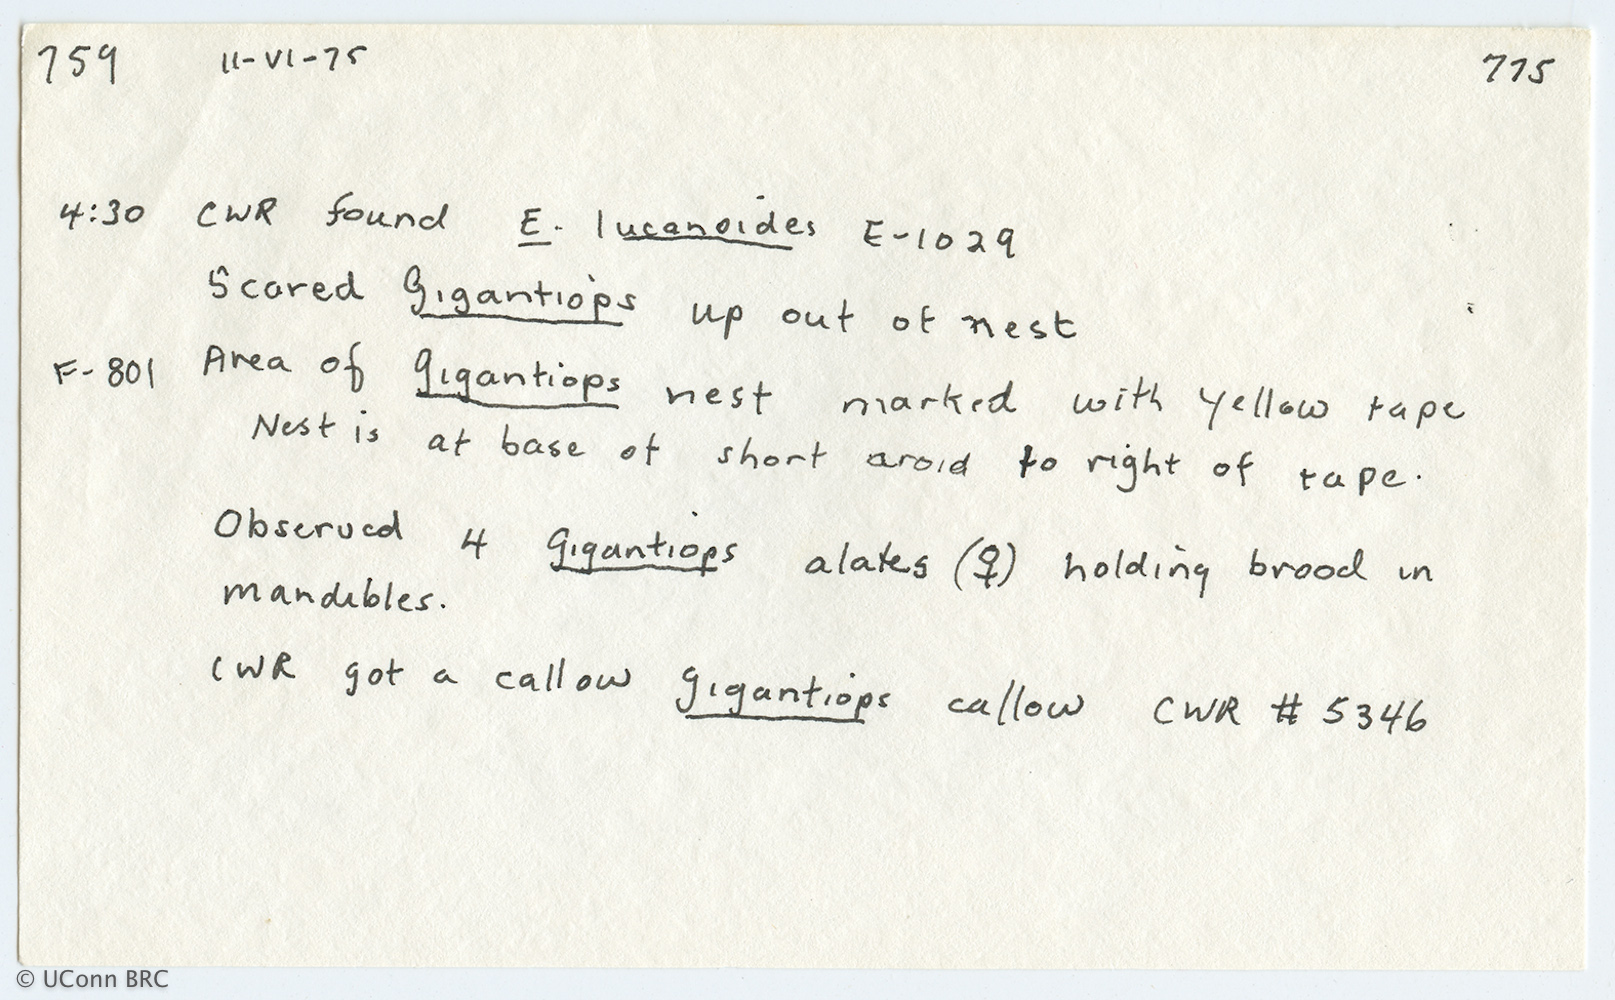 759 11-VI-75 775
4:30 CWR found E. lucanoides E-1029
Scared Gigantiops up out of nest
F-801 Area of Gigantiops nest marked with yellow tape
Nest is at base of short aroid to right of tape.
Observed 4 Gigantiops alates (♀) holding brood in
mandibles.
CWR got a callow Gigantiops callow CWR # 5346
© UConn BRC